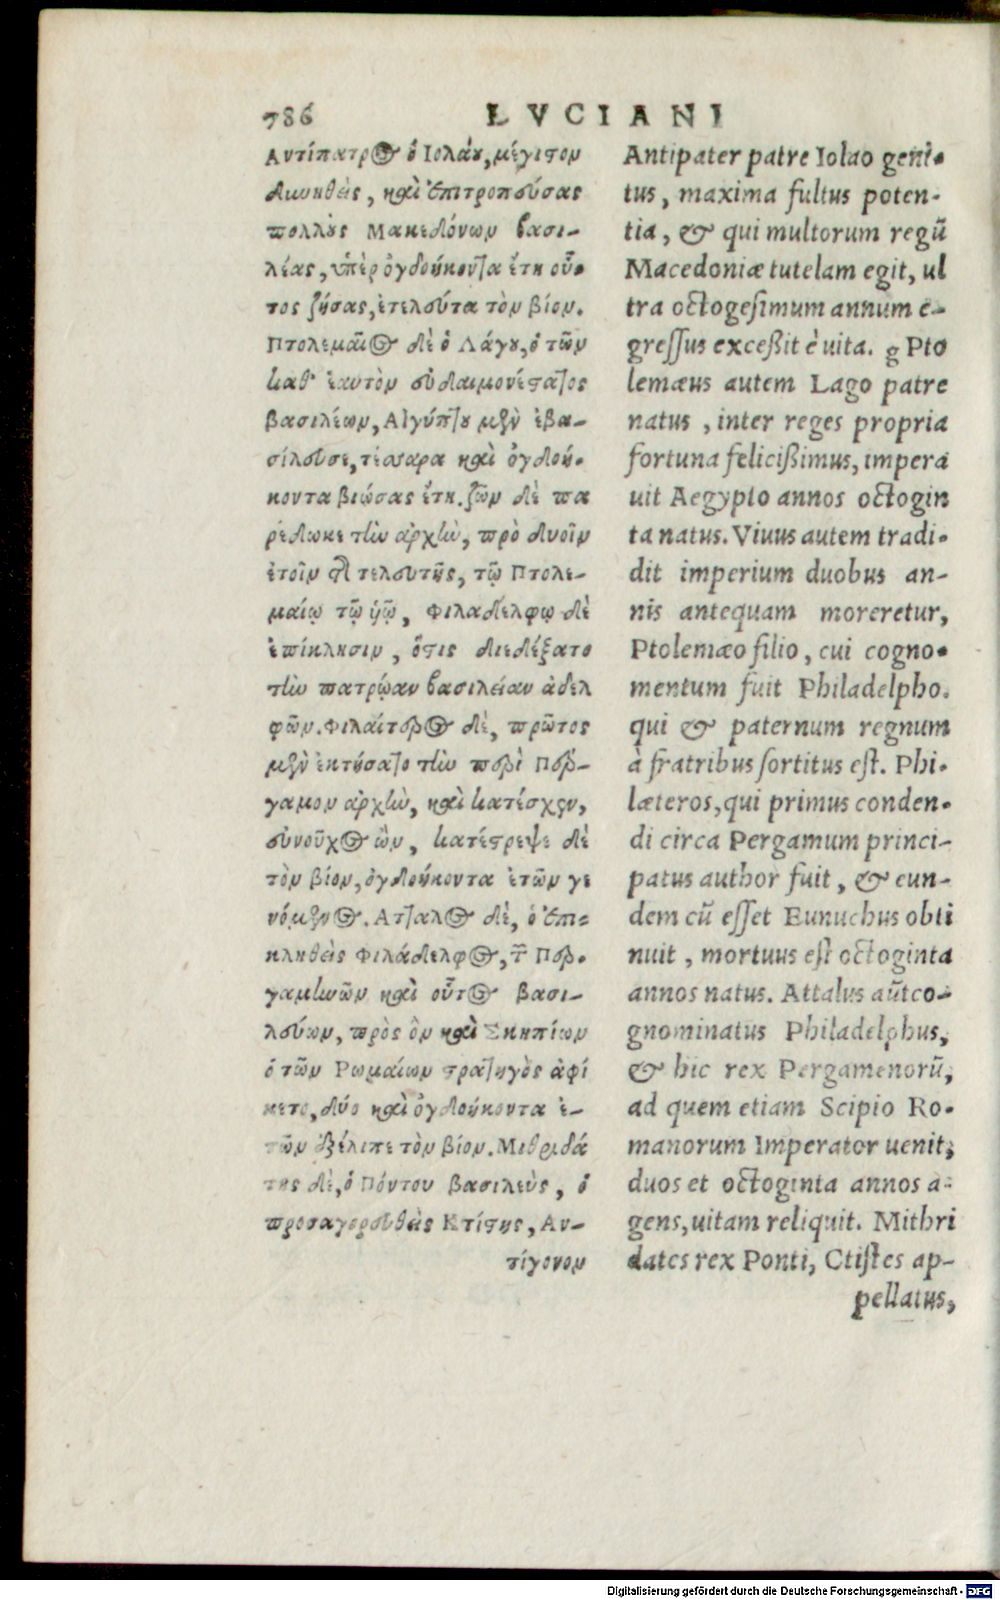 786 LVCIANI
Αντίπατρος ὁ Ιολάου, μέγιστον
δυνηθεὶς, καὶ ἐπιτροπεύσας
πολλοὺς Μακεδόνων βασι-
λέας, ὑπὲρ ὀγδοήκοντα ἔτη οὗ-
τος ζήσας, ἐτελεύτα τὸν βίον.
Πτολεμαῖος δὲ ὁ Λάγου, ὁ τῶν
καθ' ἑαυτὸν εὐδαιμονέστατος
βασιλέων, Αἰγύπτου μὲν ἐβα-
σίλευσε, τέσσαρα καὶ ὀγδοή-
κοντα βιώσας ἔτη. ζῶν δὲ πα
ρέδωκε τὴν ἀρχὴν, πρὸ δυοῖν
ἐτοῖν τῆς τελευτῆς, τῷ Πτολε-
μαίῳ τῷ ὑῷ, Φιλαδέλφῳ δὲ
ἐπίκλησιν, ὅστις διεδέξατο
τὴν πατρῴαν βασιλείαν ἀδελ
φῶν. Φιλαίτερος δὲ, πρῶτος
μὲν ἐκτήσατο τὴν περὶ Πέρ-
γαμον ἀρχὴν, καὶ κατέσχεν,
εὐνοῦχος ὢν, κατέστρεψε δὲ
τὸν βίον, ὀγδοήκοντα ἐτῶν γε
νόμενος. Ατταλος δὲ, ὁ ἐπι-
κληθεὶς Φιλάδελφος, τῶν Περ-
γαμηνῶν καὶ οὗτος βασι-
λεύων, πρὸς ὃν καὶ Σκηπίων
ὁ τῶν Ρωμαίων στρατηγὸς ἀφί
κετο, δύο καὶ ὀγδοήκοντα ἐ-
τῶν ἐξέλιπε τὸν βίον. Μιθριδά
της δὲ, ὁ Πόντου βασιλεὺς, ὁ
προσαγορευθεὶς Κτίστης, Αν-
τίγονον
Antipater patre Iolao geni-
tus, maxima fultus poten-
tia, & qui multorum regũ
Macedoniæ tutelam egit, ul
tra octogesimum annum e-
gressus excessit è uita. g Pto
lemæus autem Lago patre
natus, inter reges propria
fortuna felicißimus, impera
uit Aegypto annos octogin
ta natus. Viuus autem tradi-
dit imperium duobus an-
nis antequam moreretur,
Ptolemæo filio, cui cogno-
mentum fuit Philadelpho.
qui & paternum regnum
à fratribus sortitus est. Phi-
læteros, qui primus conden-
di circa Pergamum princi-
patus author fuit, & eun-
dem cũ esset Eunuchus obti
nuit, mortuus est octoginta
annos natus. Attalus aũt co-
gnominatus Philadelphus,
& hic rex Pergamenorũ,
ad quem etiam Scipio Ro-
manorum Imperator uenit,
duos et octoginta annos a-
gens, uitam reliquit. Mithri
dates rex Ponti, Ctistes ap-
pellatus,
Digitalisierung gefördert durch die Deutsche Forschungsgemeinschaft - DFG